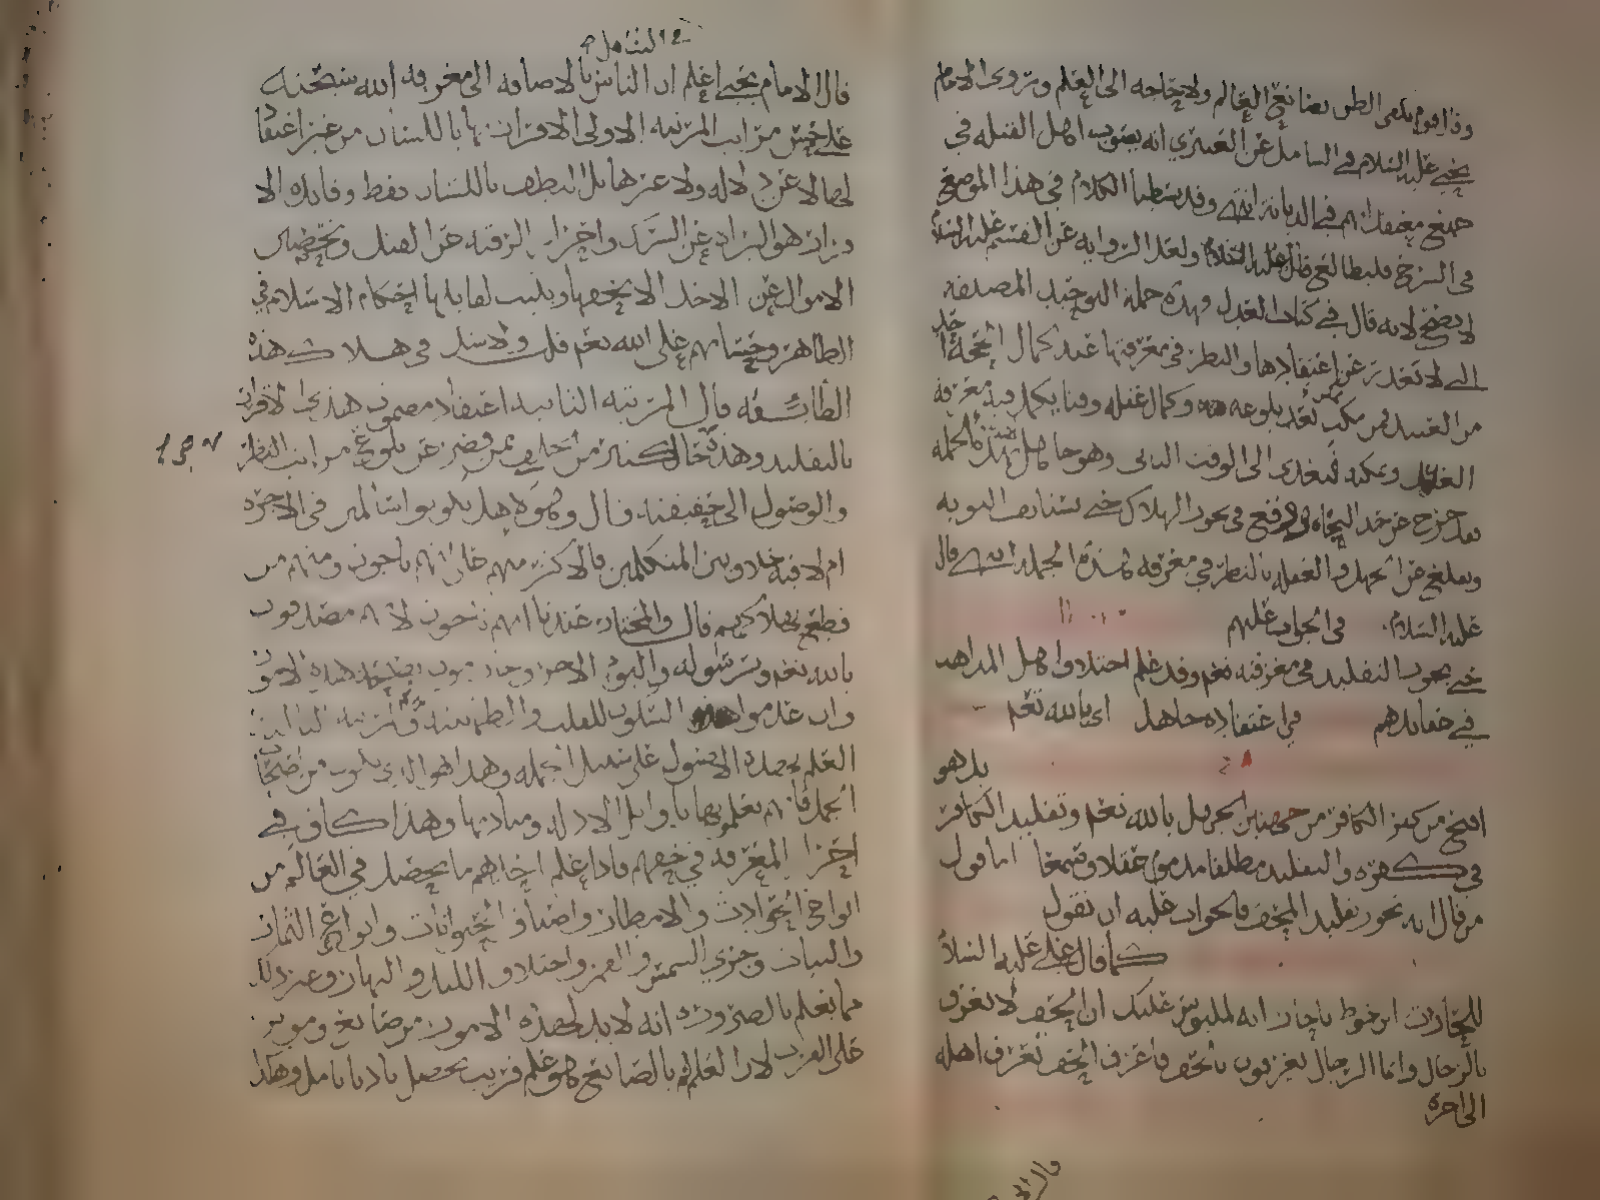 وذا قوم يكفي الظن بصانع العالم ولا حاجة الى العلم وتروى الامام
يحيى عليه السلام في الشامل عن العنبري انه يصوب اهل القبلة في
جميع معتقداتهم في الديانة انتهى وقد بسطنا الكلام في هذا الموضع
في الشرح فليطالع قال عليه السلام ولعل الرواية عن القسم عليه السلام
لا تصح لانه قال في كتاب العدل وهذه جملة التوحيد المصدقة
التي لا تعذر عن اعتقادها والنظر في معرفتها عند كمال الحجة
من العبيد فمن مكث بعد بلوغه وكمال عقله وقتا يكمل فيه معرفة
العدل ويمكنه فتعدى الى الوقت الثاني وهو جاهل بهذه الجملة
فقد خرج من حد النجاة ووقع في بحور الهلاك حتى يستأنف التوبة
ويقلع عن الجهل والغفلة بالنظر في معرفة هذه الجملة انتهى قال
عليه السلام في الجواب عليهم
حتى يجوب التقليد في معرفته تعم وقد علم اختلاف اهل المذاهب
في عقائدهم في اعتقاده جاهل اي بالله تعم
بل هو
اقبح من كفر الكافر من حيث ان الجهل بالله تعم وتقليد الكافر
في كفره والتقليد مطلقا مذموم عقلا وسمعا اما قول
من قال انه يجوز تقليد المحق فالجواب عليه ان نقول
كما قال علي عليه السلام
للحارث ابن حوط يا حار انه لملبوس عليك ان الحق لا يعرف
بالرجال وانما الرجال يعرفون بالحق فاعرف الحق تعرف اهله
الى اخره
في الشامل
قال الامام يحيى اعلم ان الناس بالاضافة الى معرفة الله سبحنه
على خمس مراتب المرتبة الاولى الاقرار بها باللسان من غير اعتقاد
لها لا عن دلالة ولا غيرها بل النطق باللسان فقط وفائدة الا
قرار هو البراة عن الشرك واحراز الرقبة عن القتل وتحصين
الاموال عن الاخذ الا بحقها ويثبت لقائلها احكام الاسلام في
الظاهر وحسابهم على الله تعم قلت ولا شك في هلاك هذه
الطائفة قال المرتبة الثانية اعتقاد مضمون هذا الاقرار
بالتقليد وهذه حال كثير من الخلق ممن قصر عن بلوغ مراتب النظر
والوصول الى حقيقته قال وهؤلاء هل يكونوا سالمين في الاخرة
ام لا فيه خلاف بين المتكلمين فالاكثر منهم على انهم ناجون ومنهم من
قطع بهلاكهم قال والمختار عندنا انهم ناجون لانهم مصدقون
بالله تعم وبرسوله واليوم الاخر وجازمون بصحة هذه الامور
وان عدموا السكون للقلب والطمأنينة المرتبة الثالثة
العلم بهذه الاصول على سبيل الجملة وهذا هو الذي يكون من اصحاب
الجمل فانهم يعلمونها باوائل الادلة ومباديها وهذا كاف في
احراز المعرفة في حقهم فاذا علم احدهم ما يحصل في العالم من
انواع الحوادث والامطار واصناف الحيوانات وانواع الثمار
والنبات وجري الشمس والقمر واختلاف الليل والنهار وغير ذلك
مما يعلم بالضرورة انه لا بد لهذه الامور من صانع ومؤثر
على القرب لان العلم بالصانع هو علم قريب يحصل بادنا تامل وهكذا